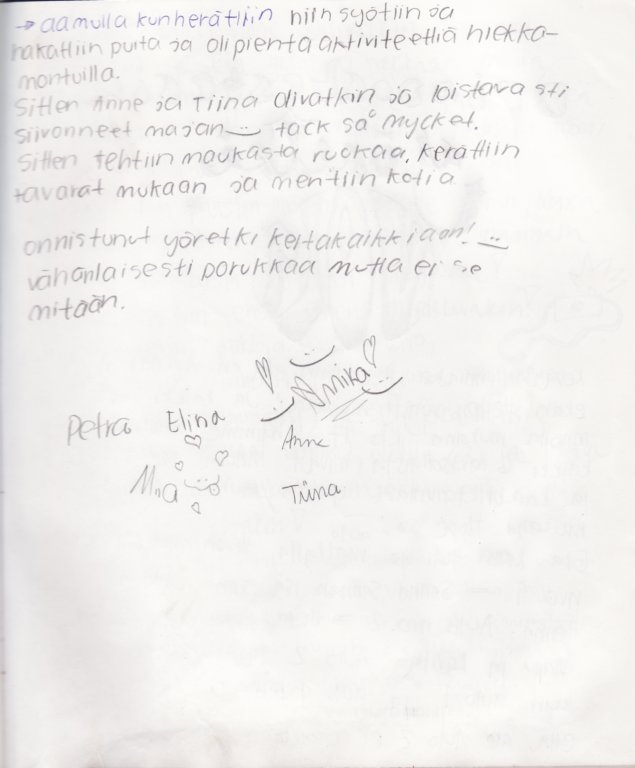 → aamulla kun herättiin niin syötiin ja
hakattiin puita ja oli pientä aktiviteettiä hiekka-
montuilla.
Sitten Anne ja Tiina olivatkin jo loistavasti
siivonneet majan tack så mycket.
Sitten tehtiin maukasta ruokaa, kerättiin
tavarat mukaan ja mentiin kotia
onnistunut yöretki kertakaikkiaan!
vähänlaisesti porukkaa mutta ei se
mitään.
Annika
Petra Elina
Anne
Tiina